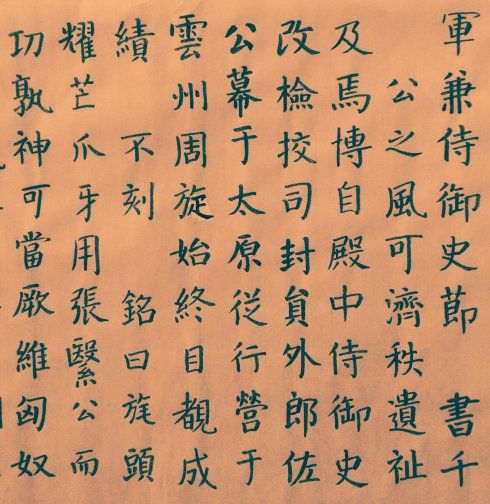 軍兼侍御史節 書千
公之風可濟秩遺祉
及焉博自殿中侍御史
改檢挍司封貟外郎佐
公幕于太原従行營于
雲州周旋始終目覩成
績 不刻 銘曰旄頭
耀芒爪牙用張繄公而
功孰神可當厥維匈奴